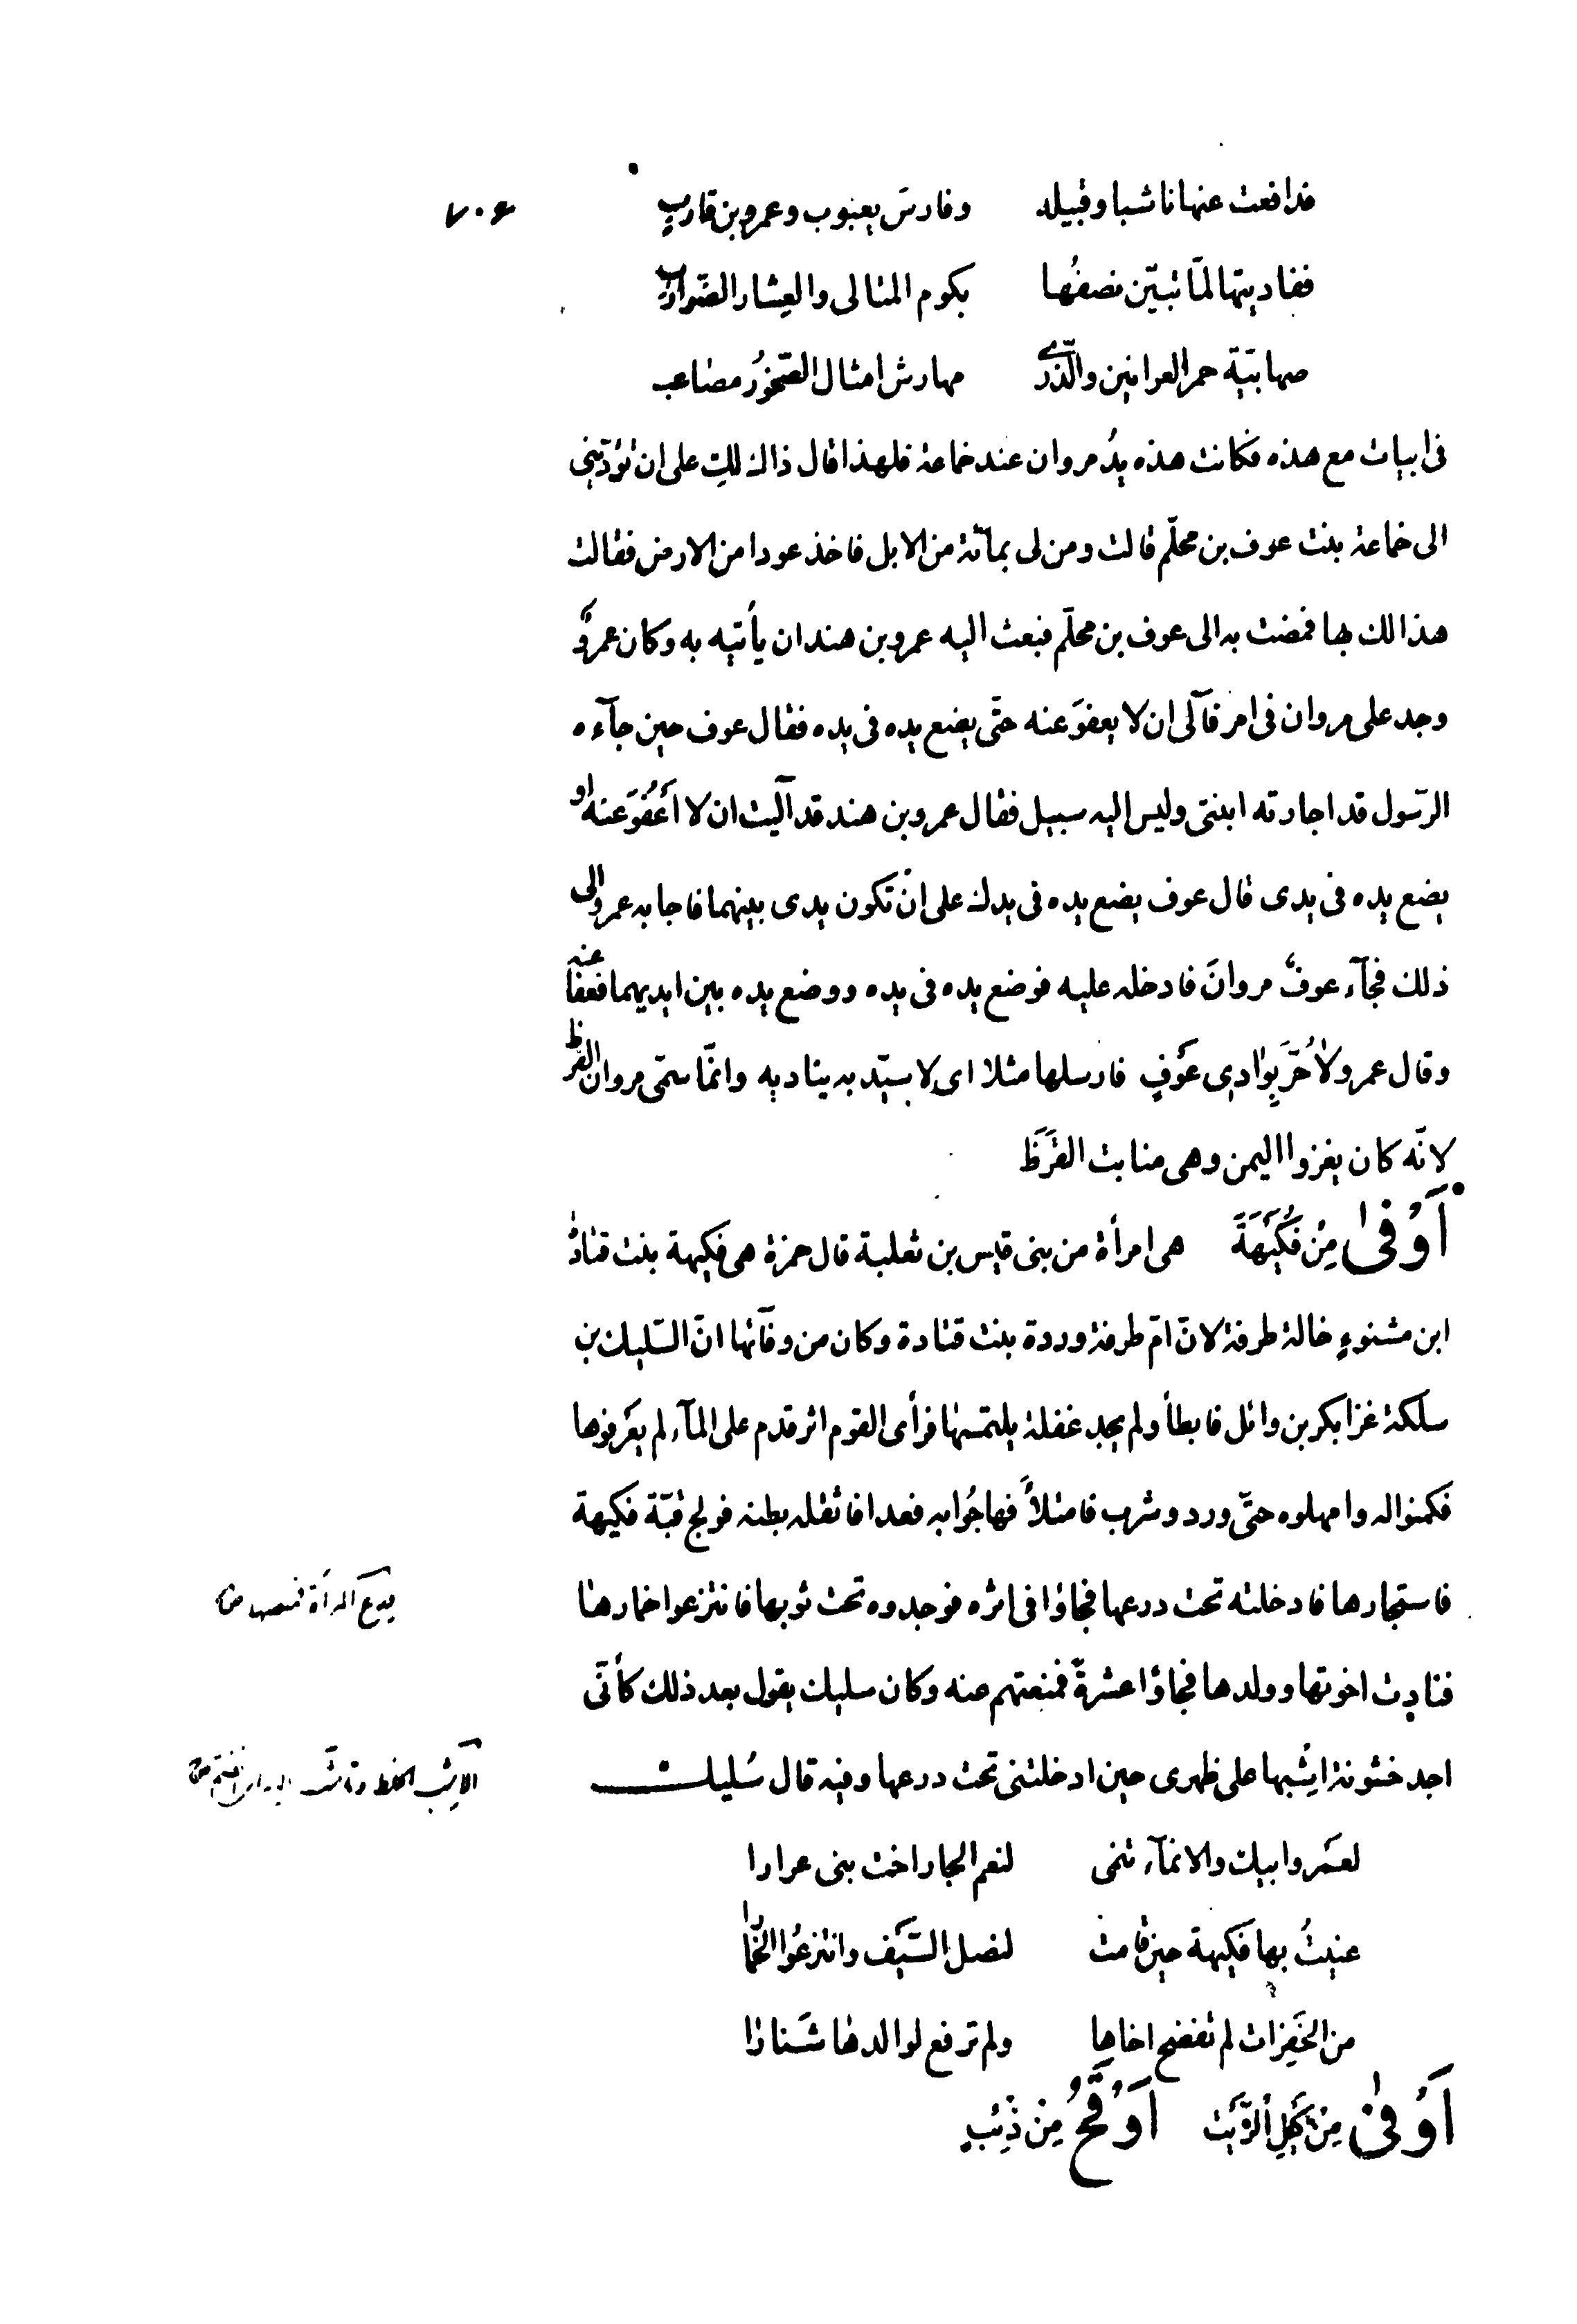 ۷۰۶
فدافعت عنها ناشبا وقبيله وفارسَ يعبوب وعمرو بن قاربٍ
ففاديتها لمّا تبيّن نصفُها بكوم المتالى والعِشار الضّوارب
صهابيّة حمر العرانين والذّرى مهاريش امثال الصّخور مصاعب
فى ابيات مع هذه فكانت هذه يدُ مروان عند خماعة فلهذا قال ذاك للتِ على ان تؤدّينى
الى خماعة بنت عوف بن محلّم قالت ومن لى بمائة من الابل فاخذ عودا من الارض فقالت
هذا لك بها فمضت به الى عوف بن محلّم فبعث اليه عمرو بن هند ان يأتيه به وكان عمرو
وجد على مروان فى امر فآلى ان لا يعفوَ عنه حتّى يضع يده فى يده فقال عوف حين جآءه
الرّسول قد اجارته ابنتى وليس اليه سبيل فقال عمرو بن هند قد آليت ان لا اَعْفُوَ عنه او
يضع يده فى يدى قال عوف يضع يده فى يدك على انْ تكون يدى بينهما فاجابه عمرو الى
ذلك فجآء عوفٌ مروانَ فادخله عليه فوضع يده فى يده ووضع يده بين ايديهما فعفا عنه
وقال عمرو لاٰ حُرَّ بِوٰادى عَوْفٍ فارسلها مثلا اى لا سيّد به يناديه وانّما سمّى مروان القرظ
لانّه كان يغزوا اليمن وهى منابت القَرَظَ
اَوْفىٰ مِنْ فُكَيْهَةَ هى امرأة من بنى قيس بن ثعلبة قال حمزة هى فكيهة بنت قتادة
ابن مشنوءٍ خالة طرفة لانّ امّ طرفة وردة بنت قتادة وكان من وفآئها انّ السّليك بن
سلكة غزا بكر بن وائل فابطأ ولم يجد غفلة يلتمسها فرأى القوم اثر قدم على المآء لم يعرفوها
فكمنوا له وامهلوه حتّى ورد وشرب فامتلأَ فهاجُوا به فعدا فاثقله بطنه فولج قبّة فكيهة
فاستجارها فادخلته تحت درعها فجاؤا فى اثره فوجدوه تحت ثوبها فانتزعوا خمارها
درع المرأة قميصها ص
فنادت اخوتها وولدها فجاؤا عشرةً فمنعتهم عنه وكان سليك يقول بعد ذلك كأنّى
اجد خشونة اِسْبها على ظهرى حين ادخلتنى تحت درعها وفيه قال سُليك
لعَمْرو ابيك والانبآء تنمى لنعم الجار اخت بنى عوارا
عنيتُ بها فكيهة حين قامت لنصل السّيف وانتزعُوا الخمارا
من الخَفِرات لم تفضح اخاها ولم ترفع لوالدها شَنارا
اَوْفىٰ مِنْ كَيْلِ اَلزَّيْتِ اَوْقَحُ مِنْ ذِئبٍ